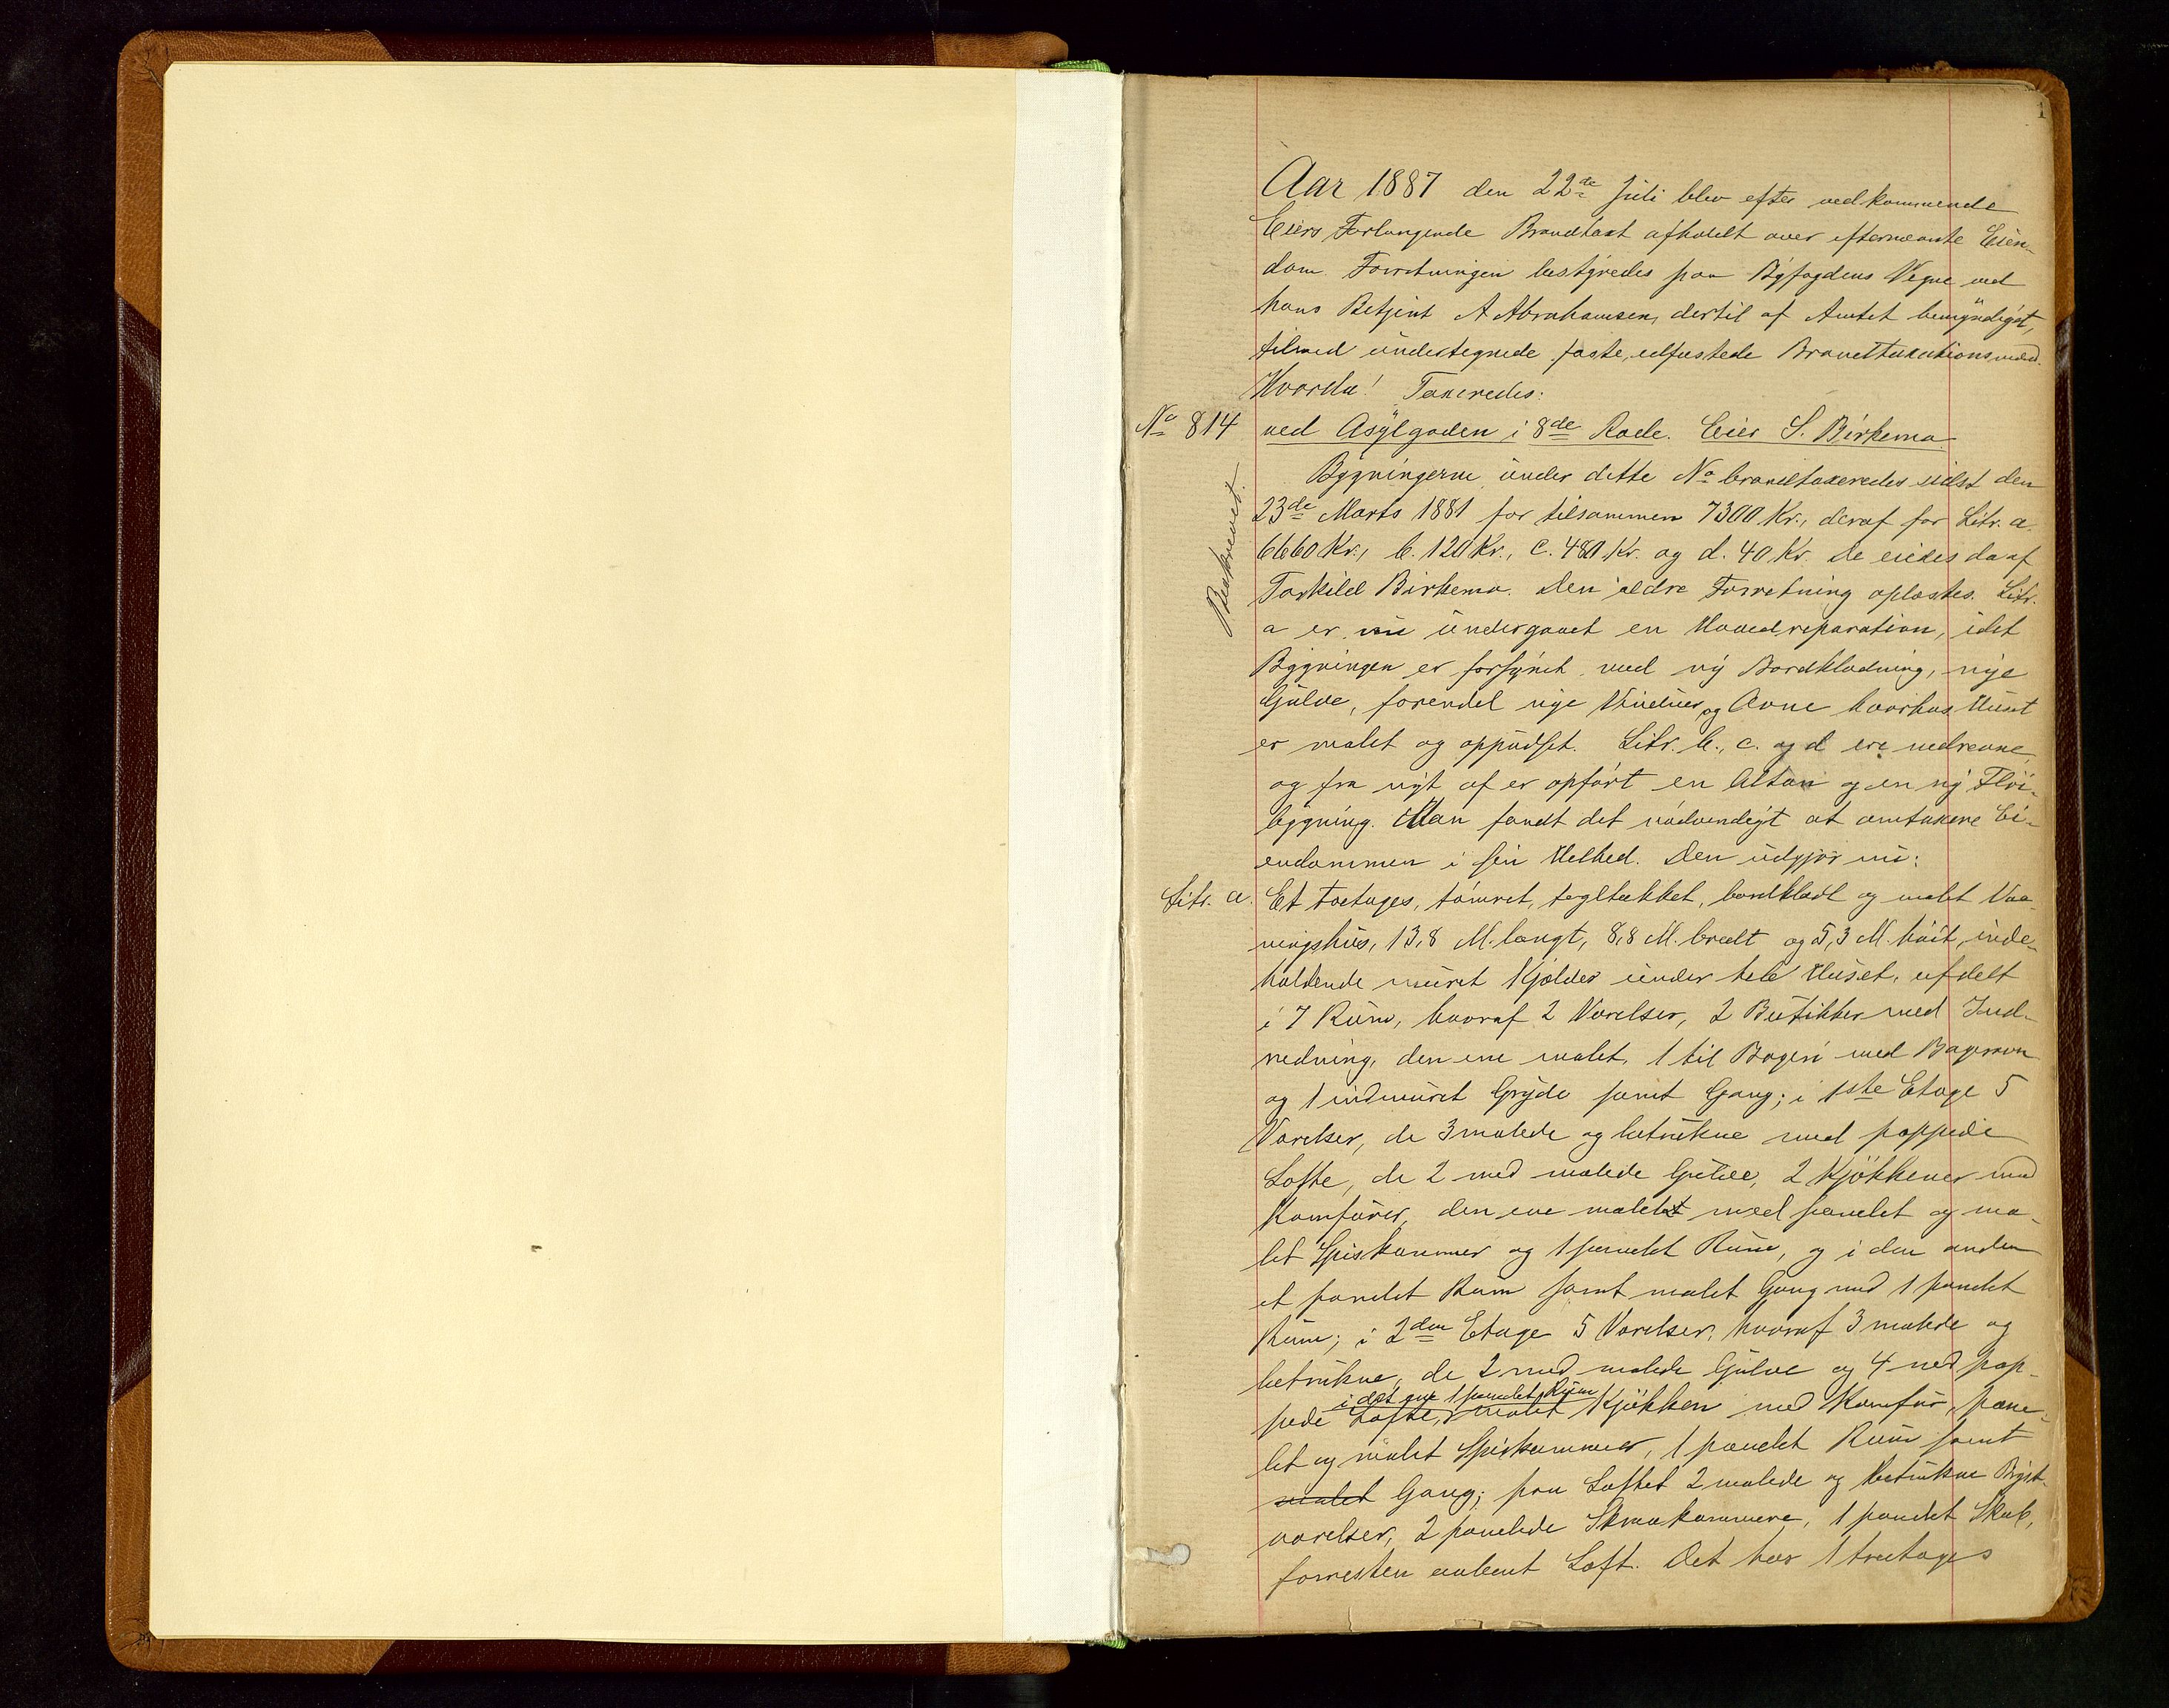 1
Aar 1887 den 22de Juli blev efter vedkommende
Eiers Forlangende Brandtaxt afholdt over efternævnte Eien-
dom. Forretningen bestyredes paa Byfogdens Vegne ved
hans Betjent A Abrahamsen, dertil af Amtet bemyndiget,
tilmed undertegnede faste, edfæstede Brandtaxationsmænd.
Hvorda! Taxeredes:
No 814 ved Asylgaden i 8de Rode. Eier S. Birkemo
Bygningerne under dette No brandtaxeredes sidst den
23de Marts 1881 for tilsammen 7300 Kr., deraf for Litr. a.
6660 Kr., b. 120 Kr., c. 480 Kr. og d. 40 Kr. De eiedes da af
Torkild Birkemo. Den ældre Forretning oplæstes. Litr.
a er nu undergaaet en Hovedreparation, idet
Bygningen er forsynet med ny Bordklædning, nye
Gulve, forendel nye Vinduer og Ovne hvorhos Huset
er malet og oppudset. Litr. b., c. og d ere nedrevne,
og fra nyt af er opført en Altan og en ny Fløi-
bygning. Man fandt det nødvendigt at omtaxere Ei-
endommen i sin Helhed. Den udgjør nu:
Bekrevet.
Litr. a. Et toetages, tømret, tegltækket, bordklædt og malet Vaa-
ningshus, 13,8 M. langt, 8,8 M. bredt og 5,3 M. høit, inde-
holdende muret Kjælder under hele Huset, afdelt
i 7 Rum, hvoraf 2 Værelser, 2 Butikker med Ind-
redning, den ene malet, 1 til Bageri med Bagerovn
og 1 indmuret Gryde samt Gang; i 1ste Etage 5
Værelser, de 3 malede og betrukne med pappede
Lofte, de 2 med malede Gulve, 2 Kjøkkener med
Komfurer, den ene malet med panelet og ma-
let Spiskammer og 1 panelet Rum, og i den anden
et panelet Rum samt malet Gang med 1 panelet
Rum; i 2den Etage 5 Værelser, hvoraf 3 malede og
betrukne, de 2 med malede Gulve og 4 med pap-
i det ene 1 panelet Rum
pede Lofte, malet Kjøkken med Komfur, pane-
let og malet Spiskammer, 1 panelet Rum samt
malet Gang; paa Loftet 2 malede og betrukne Kvist-
værelser, 2 panelede Smaakammere, 1 panelet Skab,
forresten aabent Loft. Det har 1 treetages